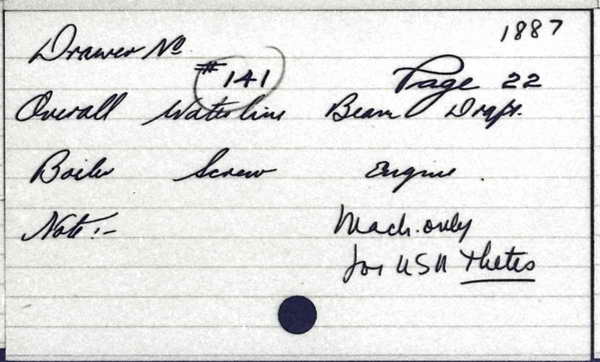 1887
Drawer No
#141 Page 22
Overall Waterline Beam Draft.
Boiler Screw Engine.
Note:- Mach. only
for USN Thetis